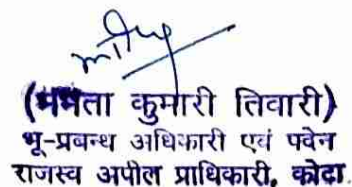 (ममता कुमारी तिवारी)
भू-प्रबन्ध अधिकारी एवं पदेन
राजस्व अपील प्राधिकारी, कोटा